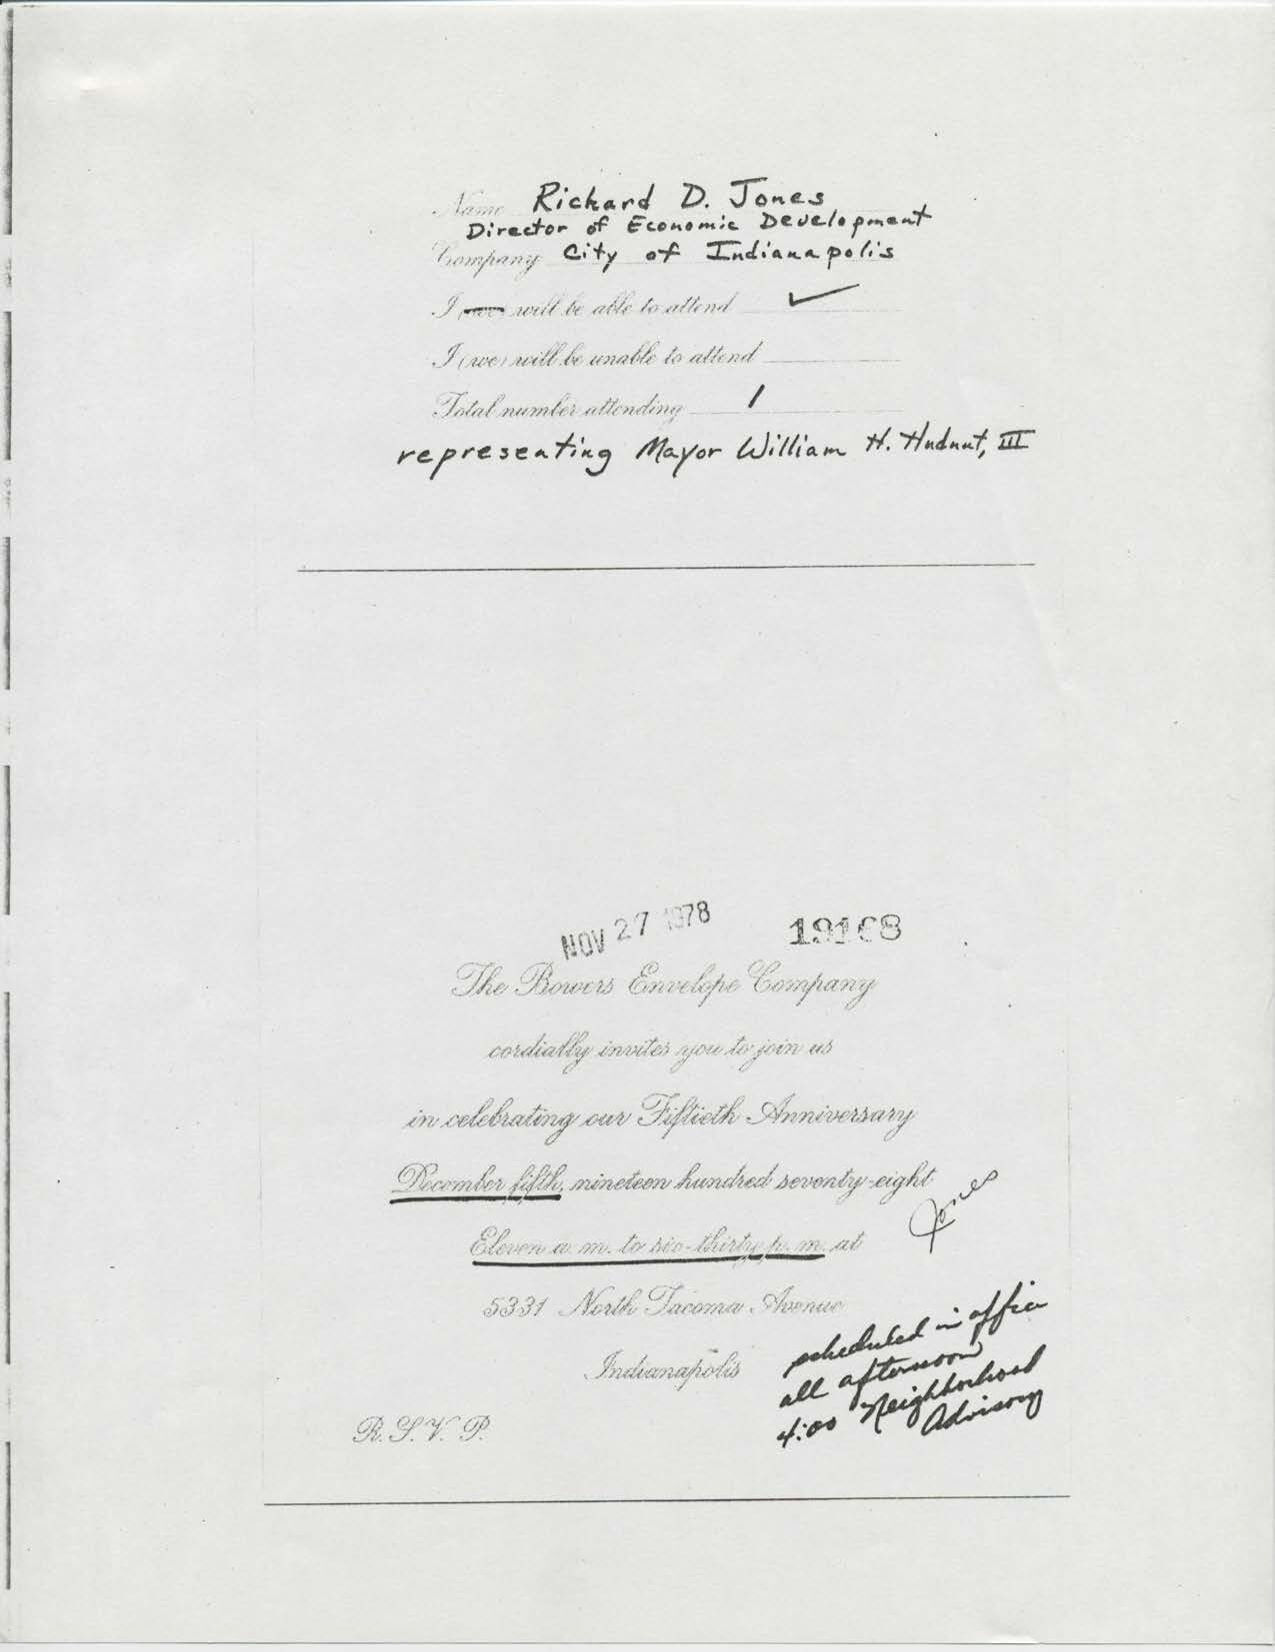 Name Richard D. Jones
Director of Economic Development
Company City of Indianapolis
I (we) will be able to attend ✓
I (we) will be unable to attend
Total number attending 1
representing Mayor William H. Hudnut, III
NOV 27 1978 19168
The Bowers Envelope Company
cordially invites you to join us
in celebrating our Fiftieth Anniversary
December fifth, nineteen hundred seventy-eight
Jones
Eleven a. m. to six-thirty p. m. at
5331 North Tacoma Avenue
Indianapolis
scheduled in office
all afternoon
4:00 Neighborhood
Advisory
R. S. V. P.